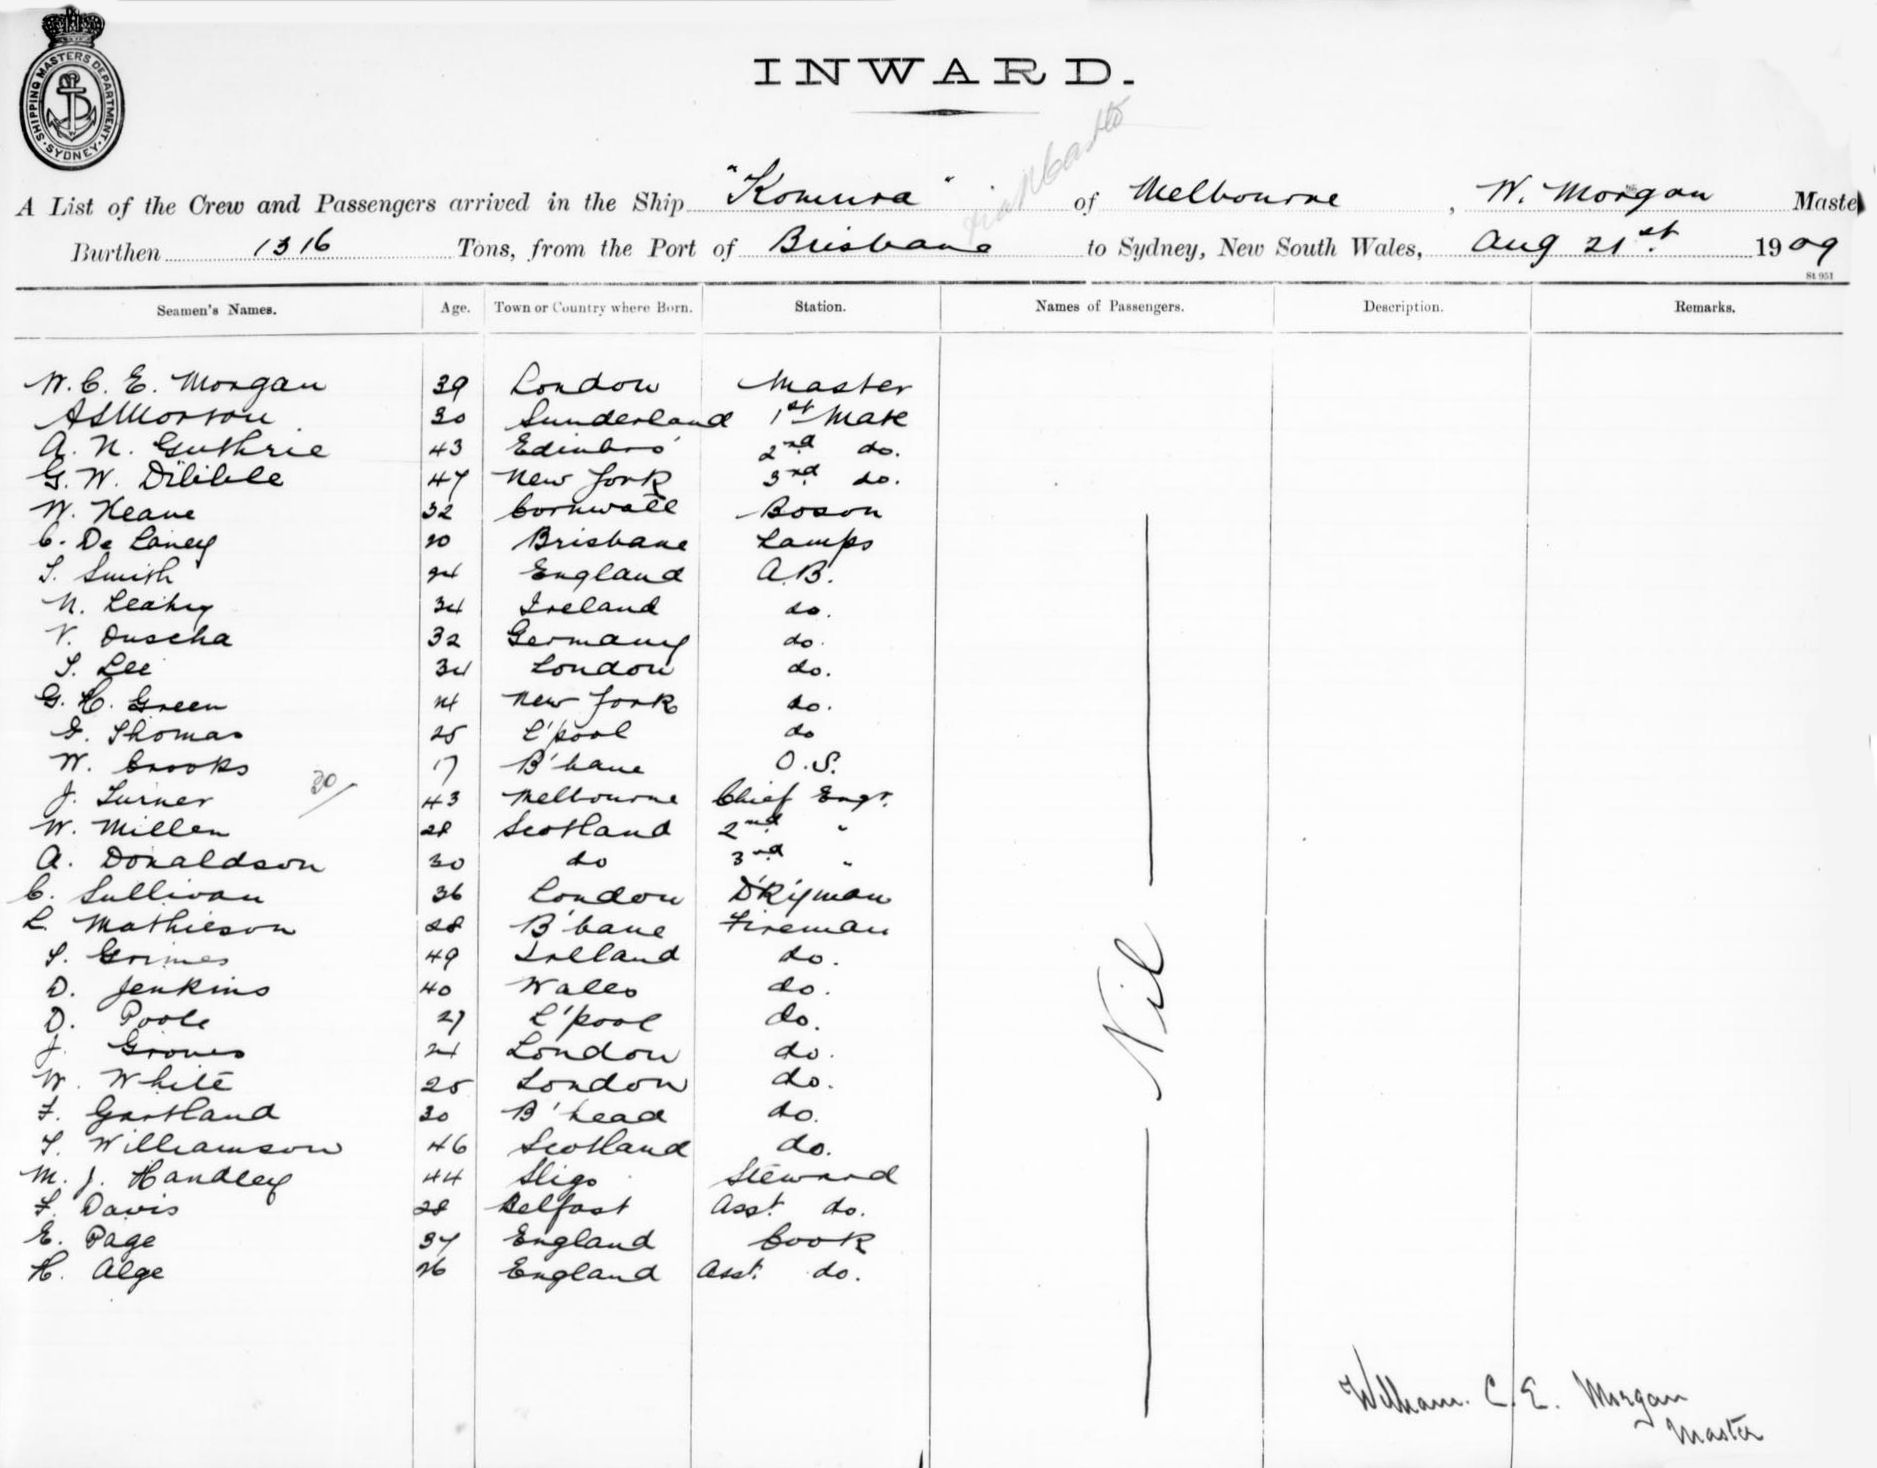 SHIPPING MASTERS DEPARTMENT
SYDNEY
INWARD.
A List of the Crew and Passengers arrived in the Ship "Komura" of Melbourne, W. Morgan Maste
Burthen 1316 Tons, from the Port of Brisbane to Sydney, New South Wales, Aug 21st. 1909
St 951
Seamen's Names. Age. Town or Country where Born. Station. Names of Passengers. Description. Remarks.
W. C. E. Morgan 39 London Master
A S Morton 30 Sunderland 1st Mate
A. N. Guthrie 43 Edinbro' 2nd do.
G. W. 47 New York 3rd do.
W. Keane 32 Cornwall Boson
C. De Laney 20 Brisbane Lamps
T. Smith 24 England A.B.
N. Leahy 34 Ireland do.
V. Duscha 32 Germany do.
T. Lee 34 London do.
G. H. Green 24 New York do.
G. Thomas 25 L'pool do
W. Crooks 17 B'bane O.S.
30/
J. Turner 43 Melbourne Chief Engr.
W. Millen 28 Scotland 2nd "
A. Donaldson 30 do 3rd "
C. Sullivan 36 London D'Kyman
L. Mathieson 28 B'bane Fireman
T. Grimes 49 Ireland do.
D. Jenkins 40 Wales do.
D. Poole 27 L'pool do.
J. Groves 24 London do.
W. White 25 London do.
F. Gartland 30 B'head do.
T. Williamson 46 Scotland do.
M. J. Handley 44 Sligo Steward
F. Davis 28 Belfast Asst. do.
E. Page 37 England Cook
H. Alge 26 England Asst. do.
Nil
William. C. E. Morgan
Master